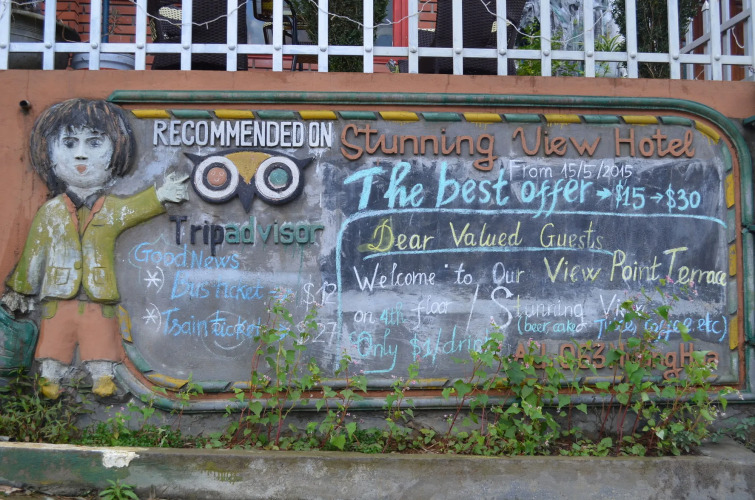 RECOMMENDED ON
Tripadvisor
Good News
*) Bus ticket → $12
*) Train ticket
Stunning View Hotel
From 15/5/2015
The best offer → $15 → $30
Dear Valued Guests
Welcome to Our View Point Terrace
on 4th floor / Stunning View
(beer coke, Juice, coffee etc)
Only $1/drink